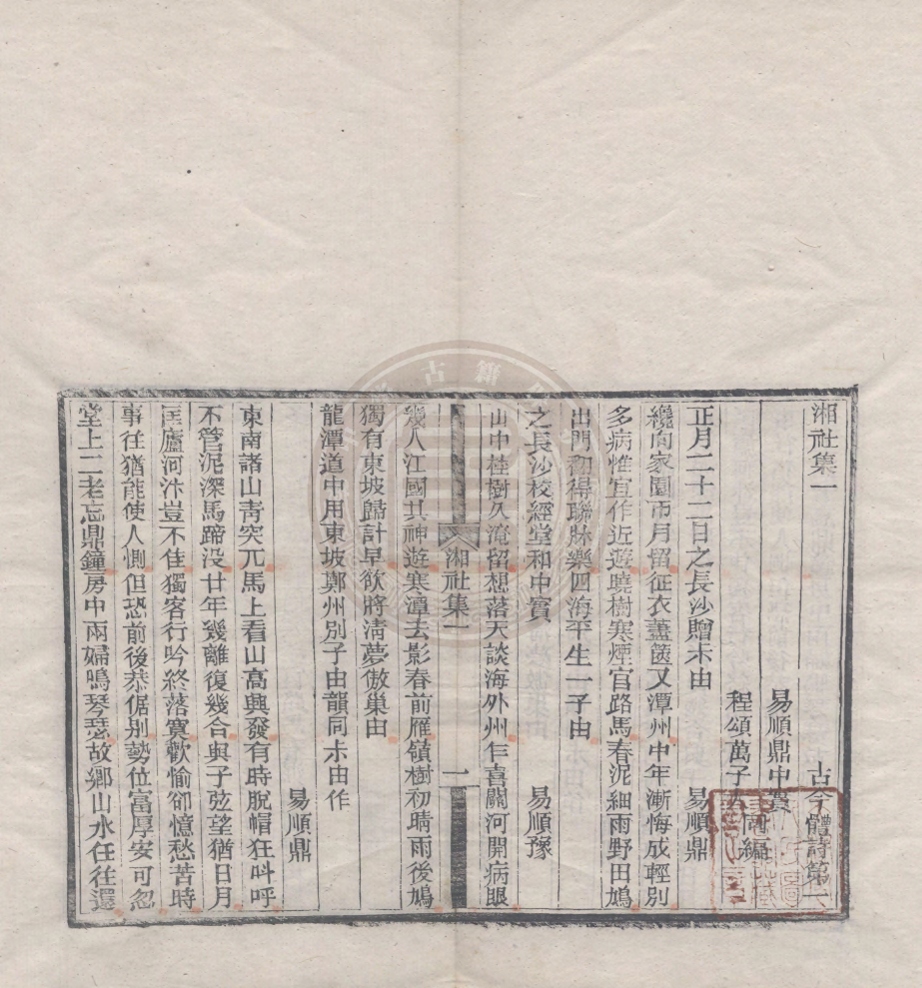 湘社集一
古今體詩第一
易順鼎中實
程頌萬子大同編
正月二十二日之長沙贈未由
易順鼎
纔向家園市月留征衣藎篋又潭州中年漸悔成輕別
多病惟宜作近遊曉樹寒煙官路馬春泥細雨野田鳩
出門初得聯牀樂四海平生一子由
之長沙校經堂和中實
易順豫
山中桂樹久淹留想落天談海外州乍喜關河開病眼
湘社集一
一
幾人江國共神遊寒潭去影春前雁嶺樹初晴雨後鳩
獨有東坡歸計早欲將淸夢傲巢由
龍潭道中用東坡鄭州別子由韻同未由作
易順鼎
東南諸山青突兀馬上看山高興發有時脫帽狂呌呼
不管泥深馬蹄没廿年幾離復幾合與子弦望猶日月
匡廬河汴豈不佳獨客行吟終落寞歡愉卻憶愁苦時
事往猶能使人惻但恐前後恭倨别勢位富厚安可忽
堂上二老忘鼎鐘房中兩婦鳴琴瑟故鄉山水任往還